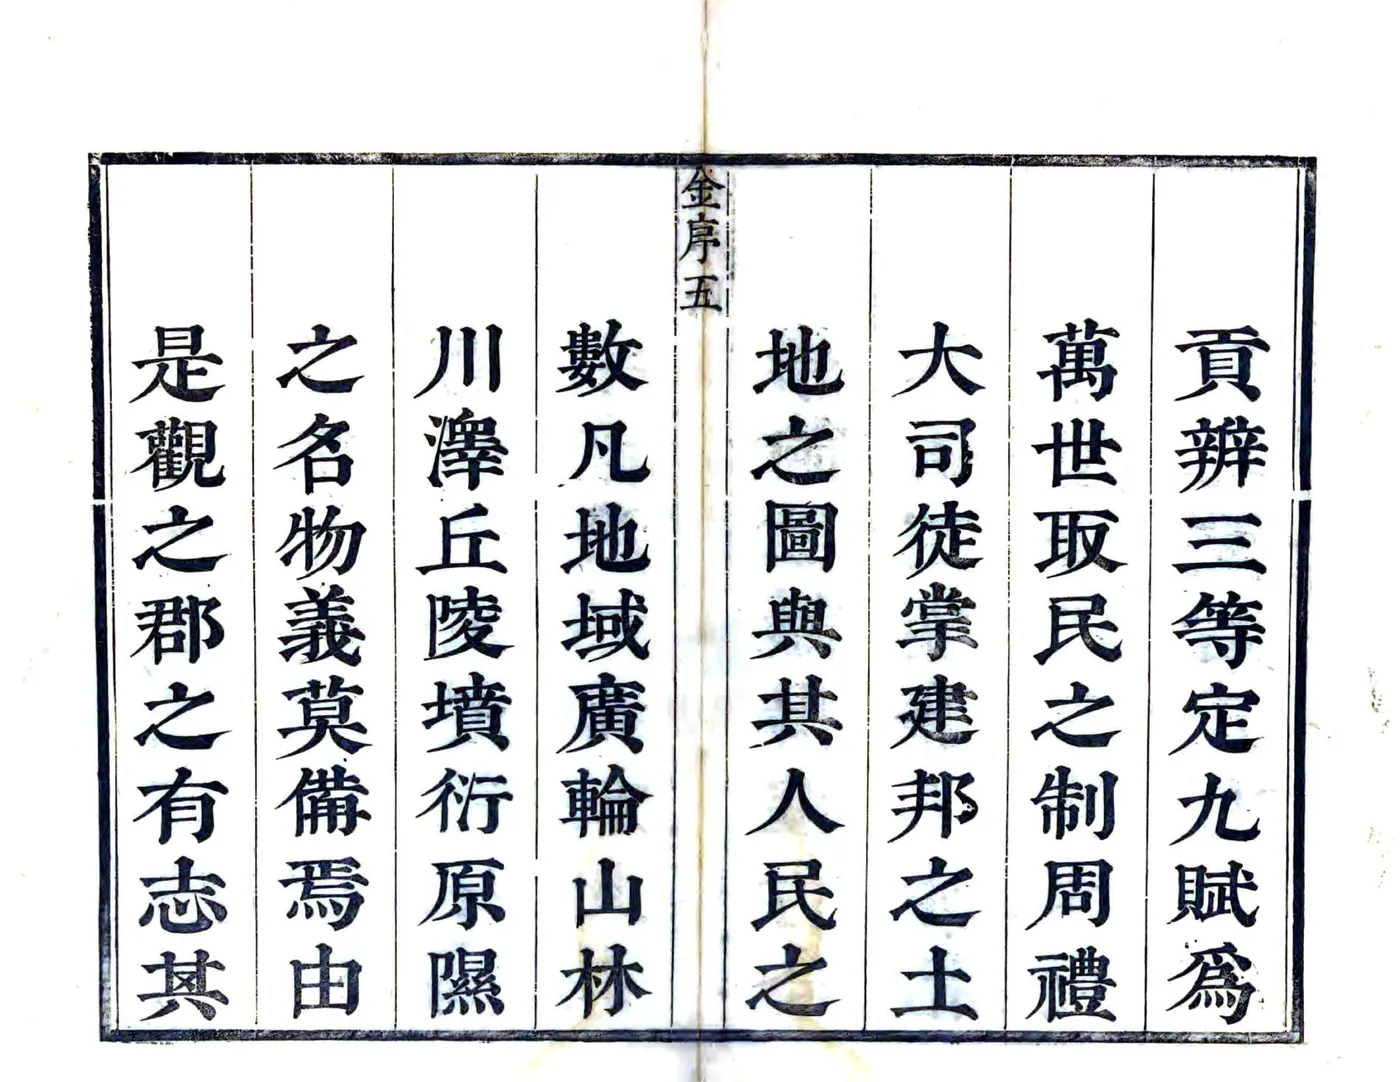 貢辨三等定九賦爲
萬世取民之制周禮
大司徒掌建邦之土
地之圖與其人民之
金序五
數凡地域廣輪山林
川澤丘陵墳衍原隰
之名物義莫備焉由
是觀之郡之有志其